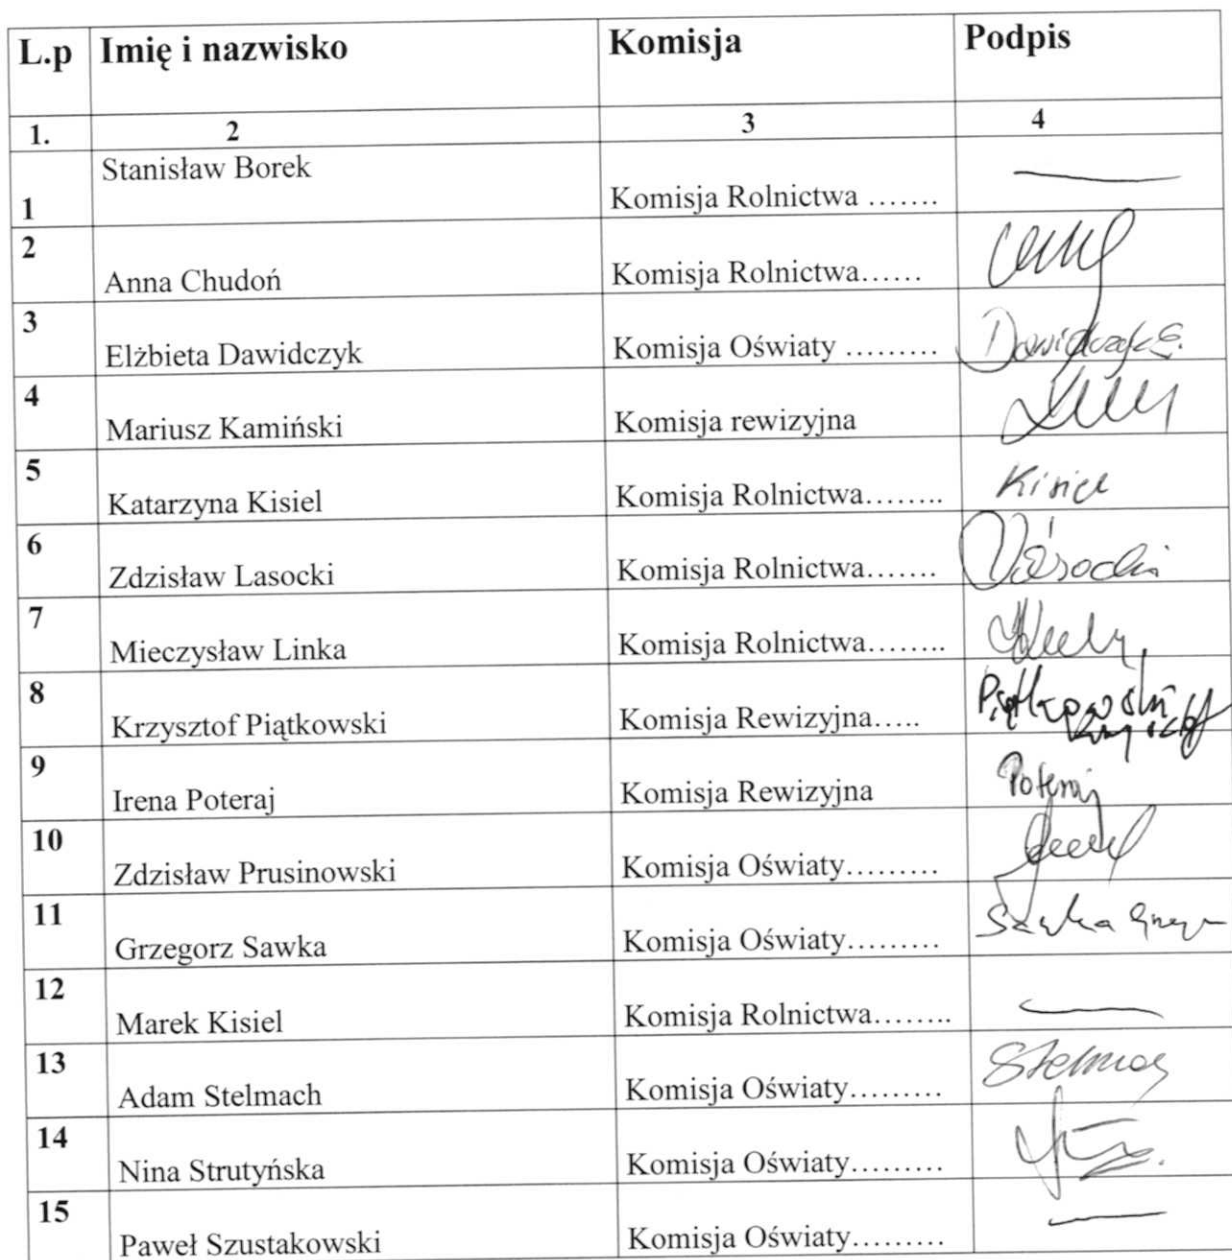 L.p Imię i nazwisko Komisja Podpis
1. 2 3 4
1 Stanisław Borek Komisja Rolnictwa …….
2 Anna Chudoń Komisja Rolnictwa……
3 Elżbieta Dawidczyk Komisja Oświaty ……… Dawidczyk E.
4 Mariusz Kamiński Komisja rewizyjna
5 Katarzyna Kisiel Komisja Rolnictwa…….. Kisiel
6 Zdzisław Lasocki Komisja Rolnictwa…….
7 Mieczysław Linka Komisja Rolnictwa……..
8 Krzysztof Piątkowski Komisja Rewizyjna….. Piątkowski Krzysztof
9 Irena Poteraj Komisja Rewizyjna Poteraj
10 Zdzisław Prusinowski Komisja Oświaty………
11 Grzegorz Sawka Komisja Oświaty……… Sawka
12 Marek Kisiel Komisja Rolnictwa……..
13 Adam Stelmach Komisja Oświaty……… Stelmach
14 Nina Strutyńska Komisja Oświaty………
15 Paweł Szustakowski Komisja Oświaty………